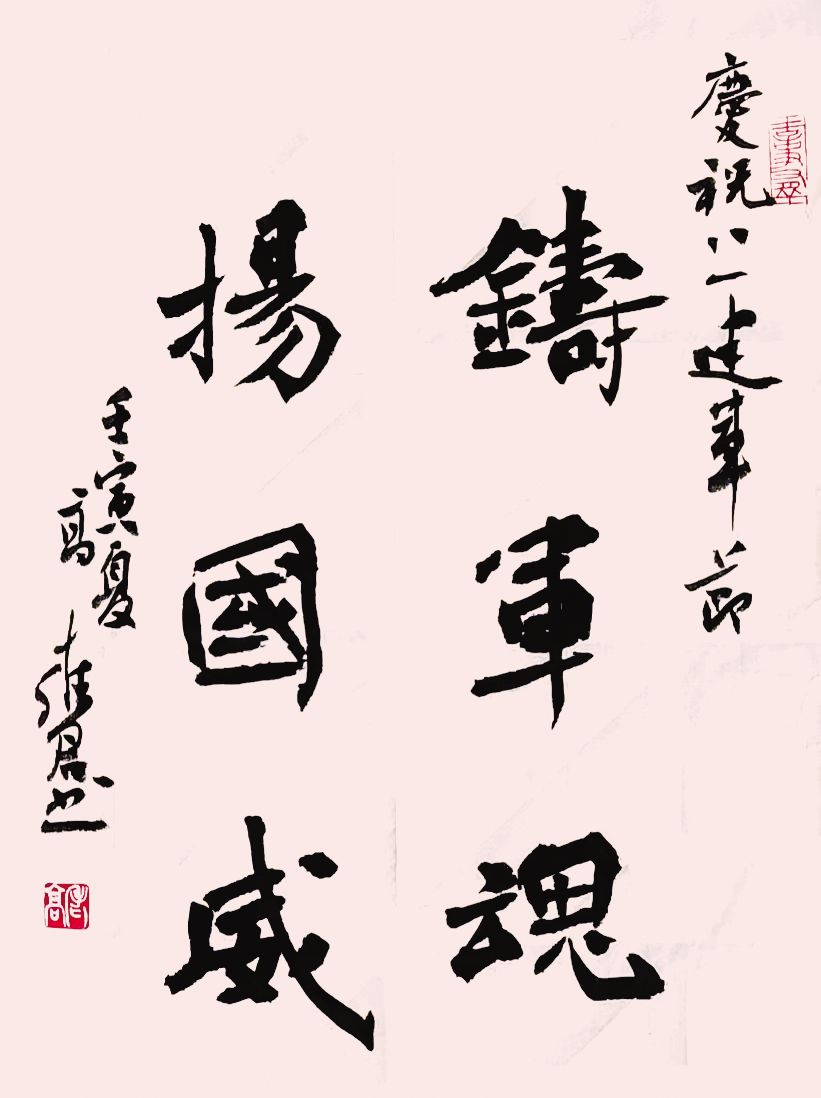 慶祝八一建軍節
鑄軍魂
揚國威
壬寅夏
高